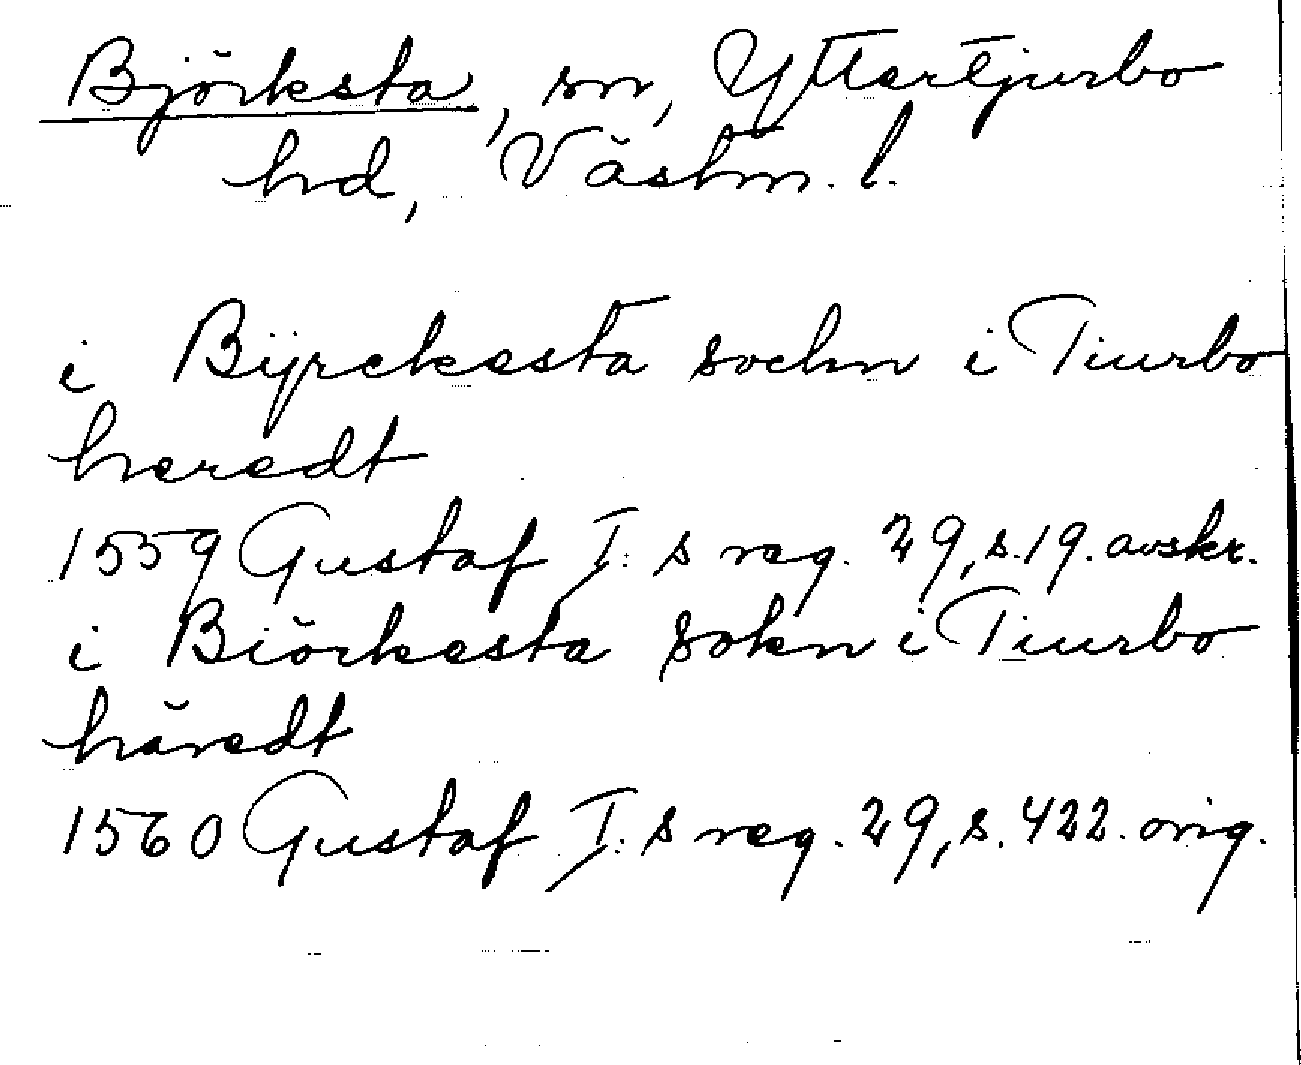 Björksta, sn, Yttertjurbo
hd, Västm. l.
i Bijrckesta sochn i Tiurbo
heredt
1559 Gustaf I:s reg. 29, s. 19. avskr.
i Biörkesta sokn i Tiurbo
häredt
1560 Gustaf I:s reg. 29, s. 422. orig.